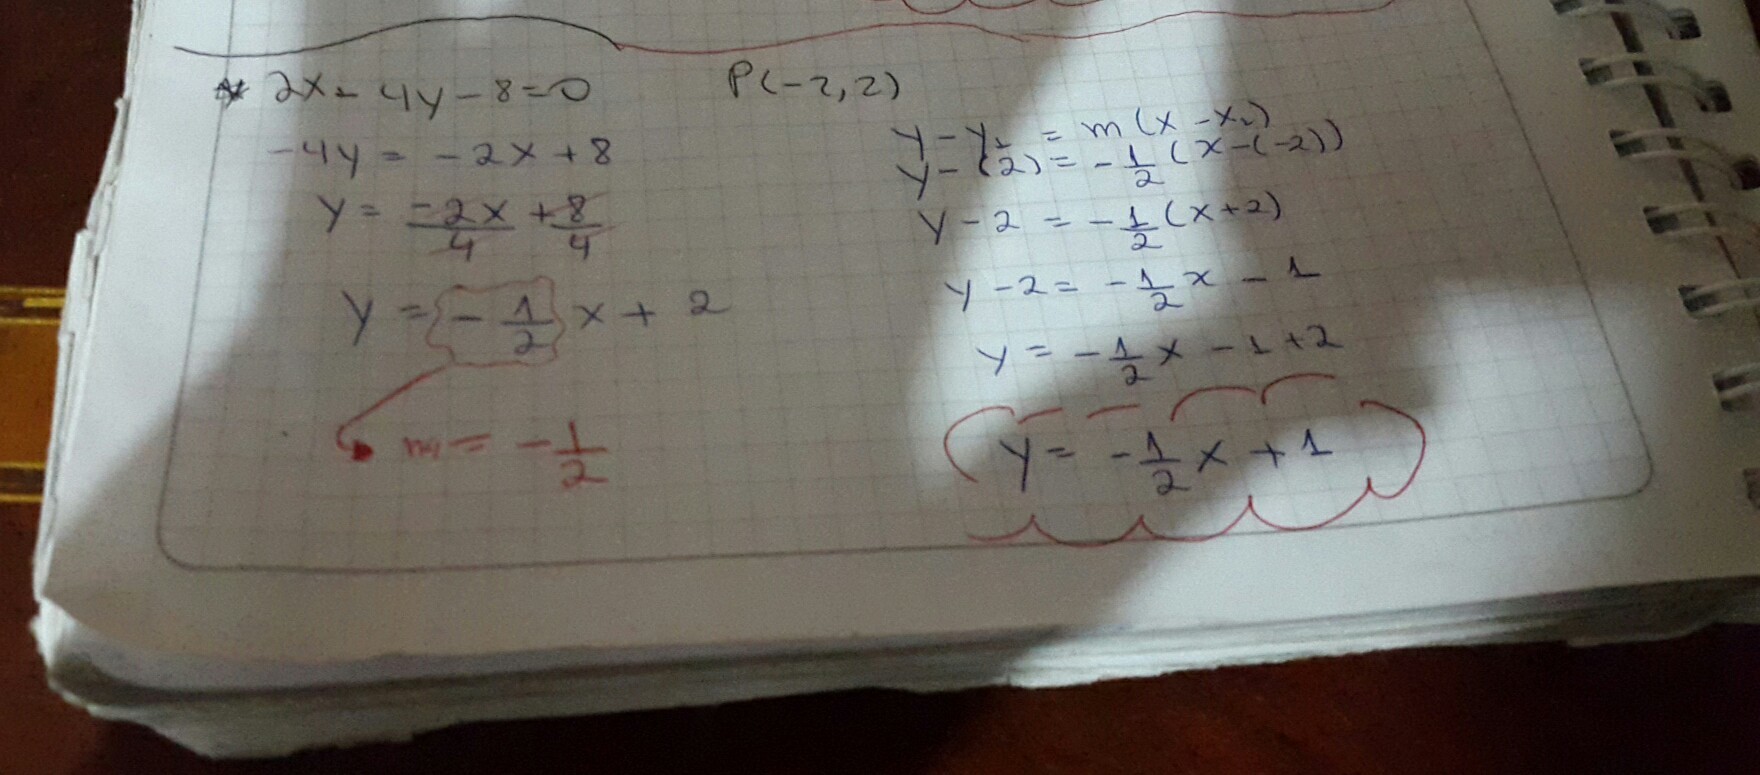 * 2x - 4y - 8 = 0
-4y = -2x + 8
y = -2x/4 + 8/4
y = - 1/2 x + 2
m = - 1/2
P(-2, 2)
y - y₁ = m (x - x₁)
y - (2) = - 1/2 (x - (-2))
y - 2 = - 1/2 (x + 2)
y - 2 = - 1/2 x - 1
y = - 1/2 x - 1 + 2
y = - 1/2 x + 1